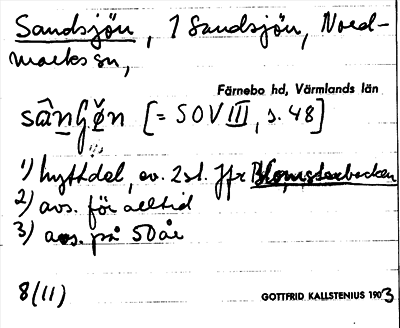 Sandsjön, 1 Sandsjön, Nord-
marks sn,
Färnebo hd, Värmlands län
[= SOV III, s. 48]
1) hyttdel, ev. 2 st. Jfr Blomsterbacken
2) avs. för alltid
3) avs. på 50 år
8(11)
GOTTFRID KALLSTENIUS 1903